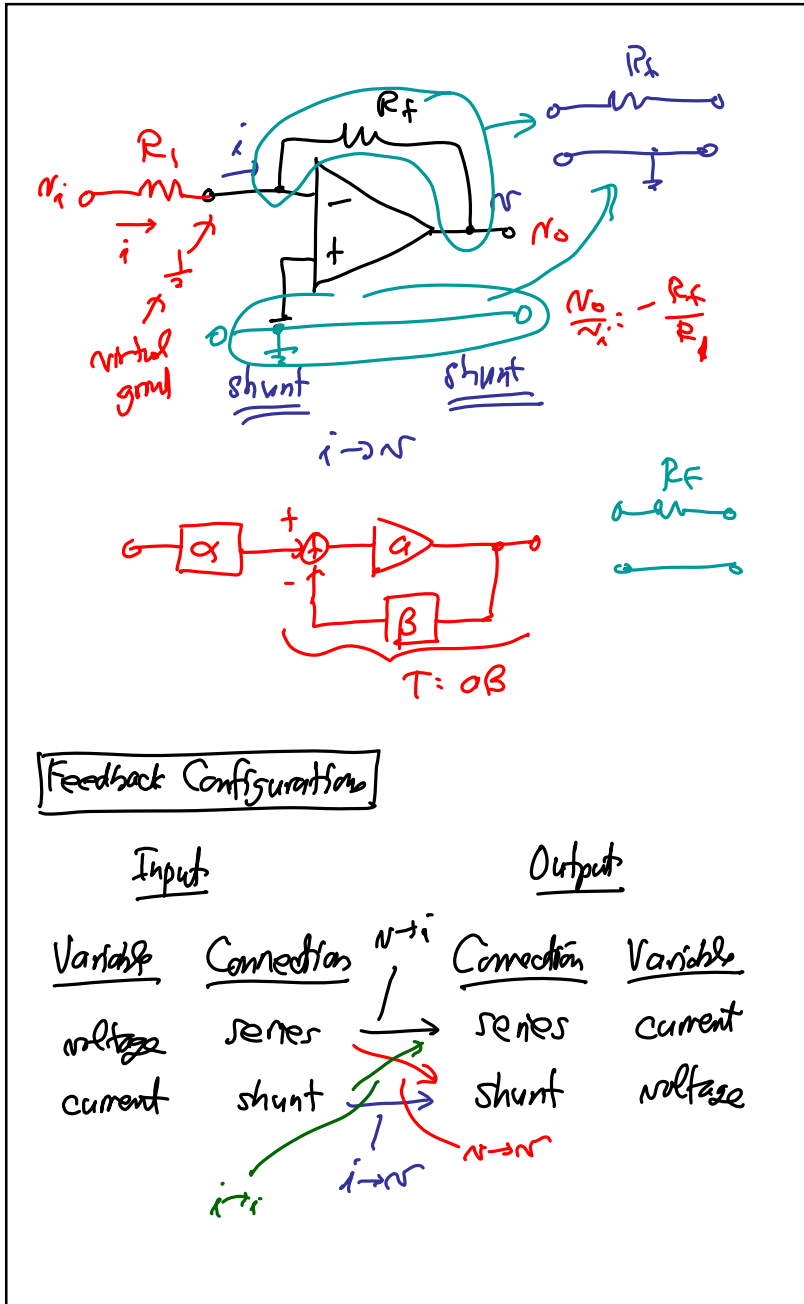 Rf
Rf
R1
i
vi
i
−
+
v
vo
virtual
grnd
vo/vi = - Rf/R1
shunt
shunt
i→v
RF
α
+
+
a
-
β
T = aβ
Feedback Configurations
Input
Output
v→i
Variable Connection Connection Variable
voltage series series current
current shunt shunt voltage
v→v
i→v
i→i